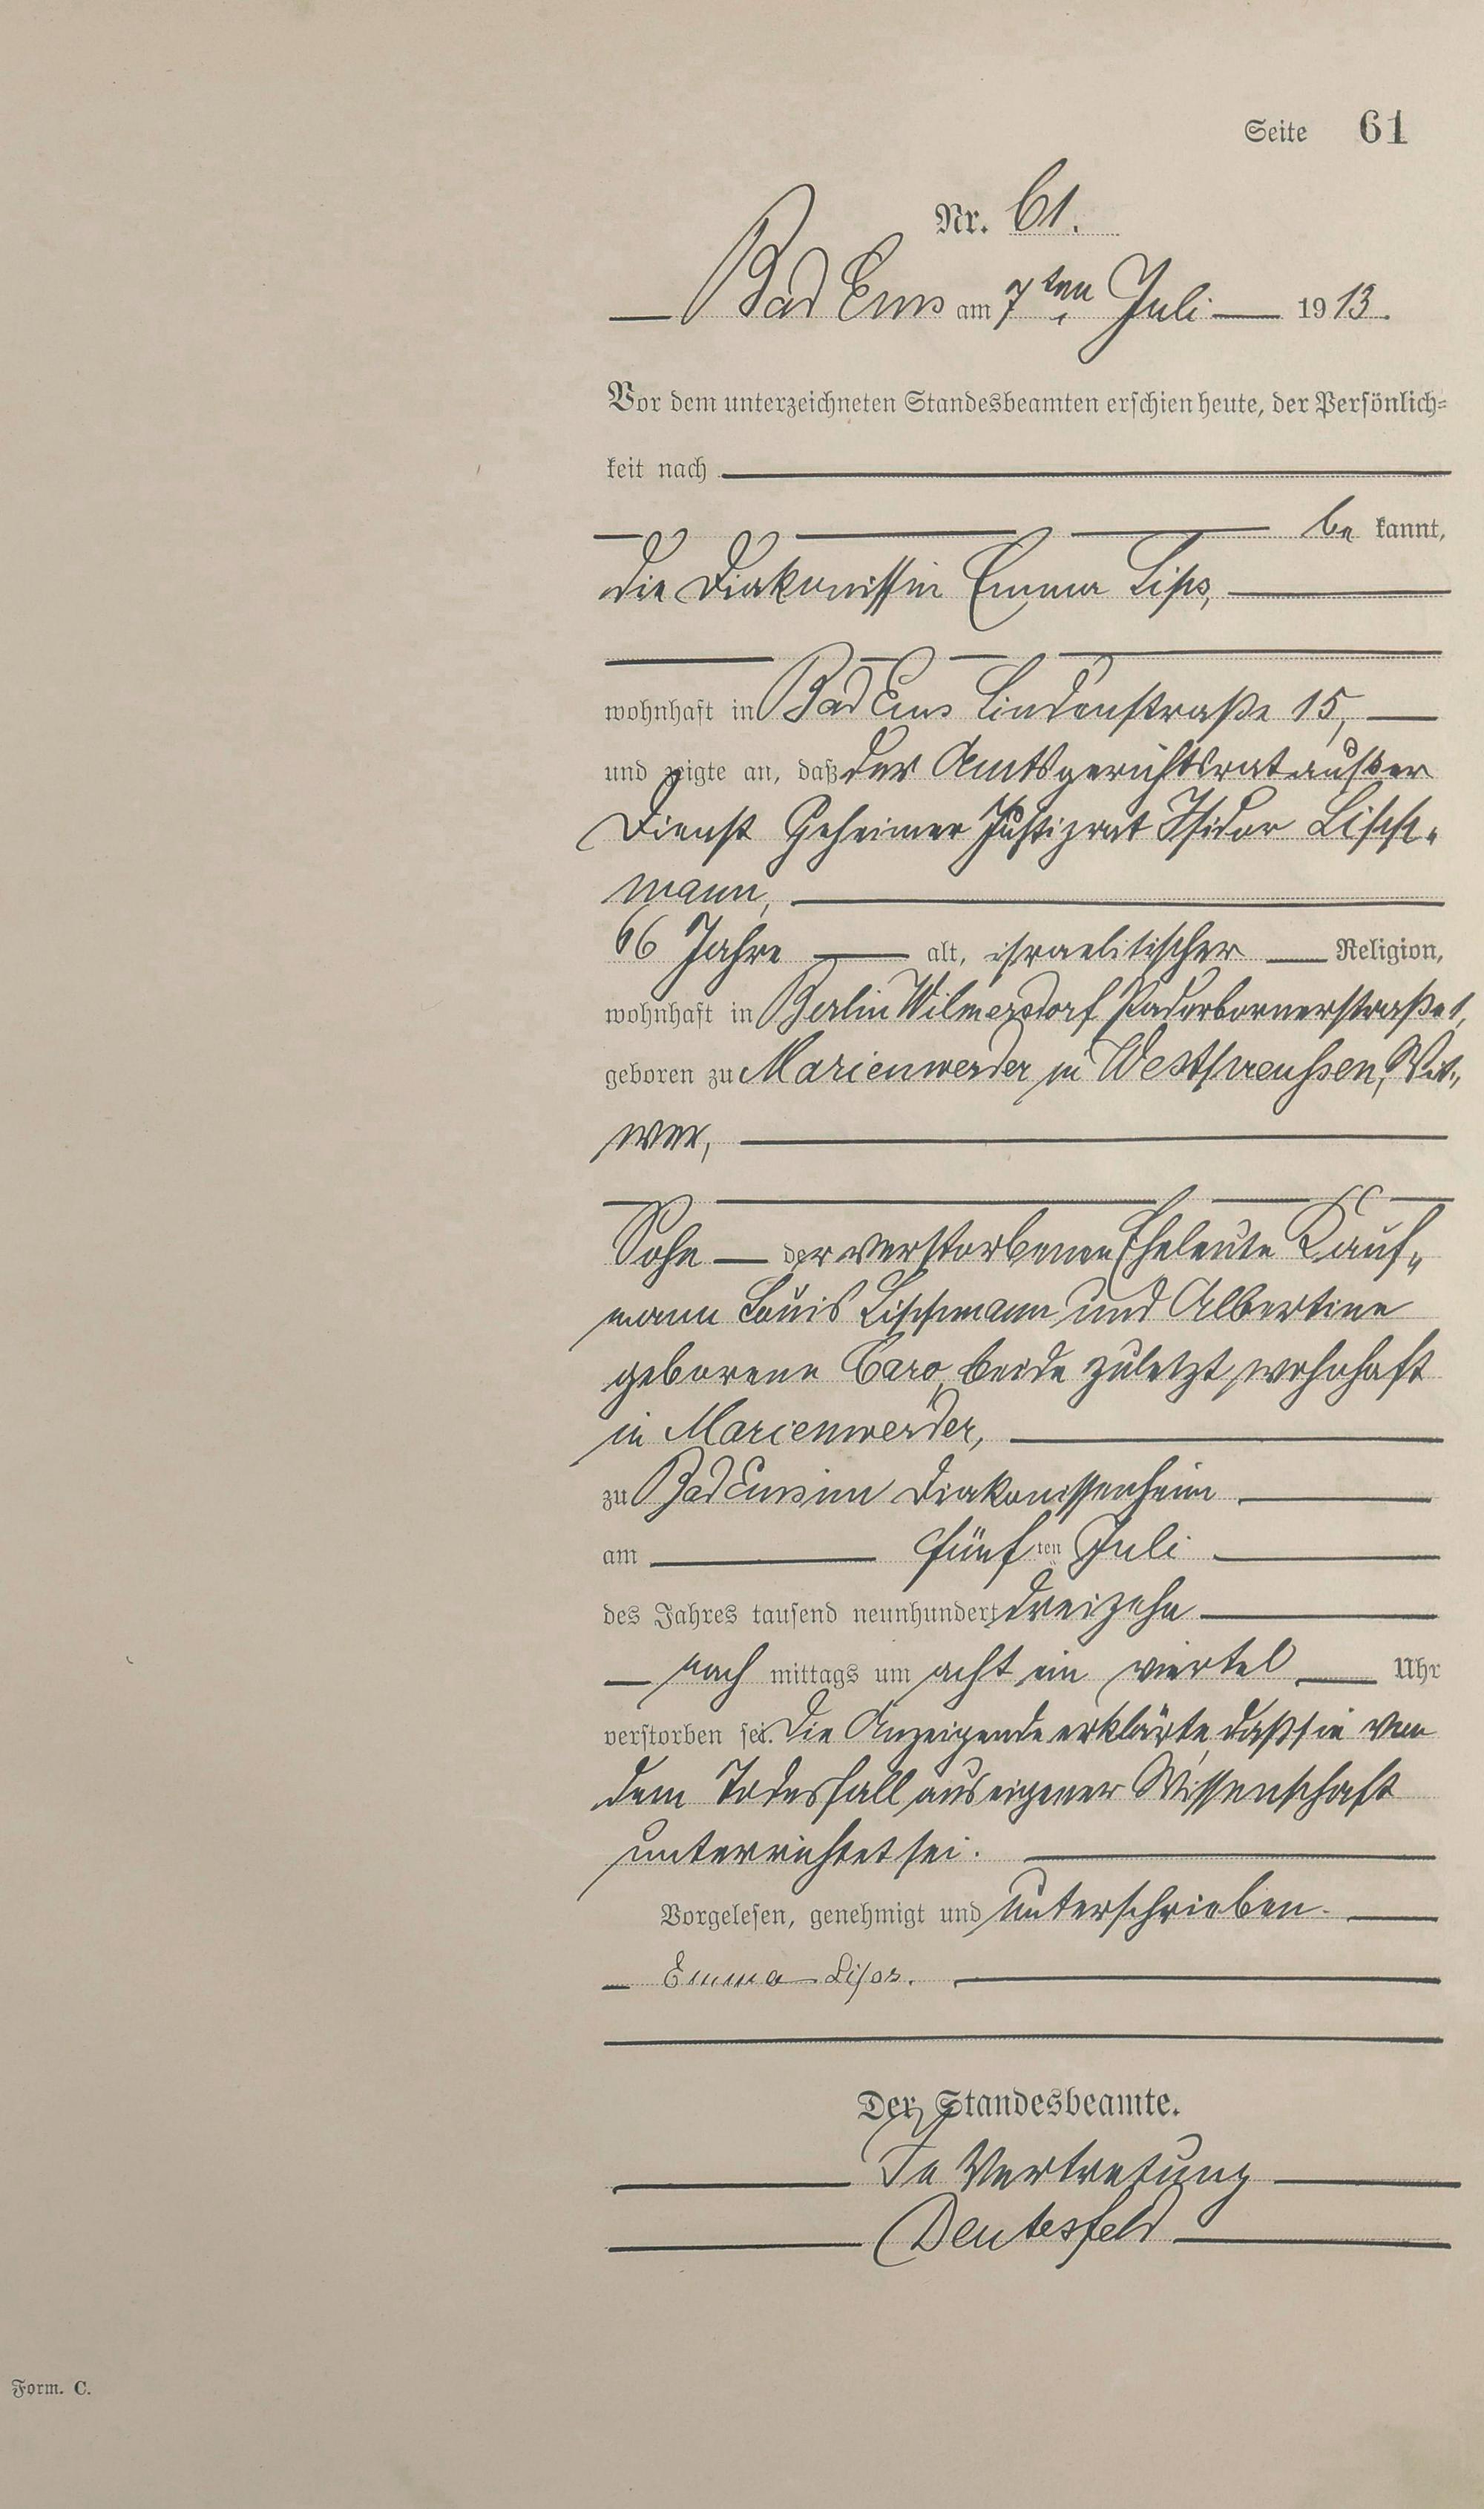 Seite 61
Nr. 61.
Bad Ems am 7ten Juli 1913.
Vor dem unterzeichneten Standesbeamten erschien heute, der Persönlich=
keit nach
be kannt,
die Diakonissin Emma Lips,
wohnhaft in Bad Ems Lindenstraße 15,
und zeigte an, daß der Amtsgerichtsrat außer
Dienst Geheimer Justizrat Isidor Lipp-
mann,
66 Jahre alt, israelitischer Religion,
wohnhaft in Berlin Wilmersdorf Paderbornerstraße 1,
geboren zu Marienwerder in Westpreußen, Wit-
wer,
Sohn der verstorbenen Eheleute Kauf-
mann Louis Lippmann und Albertine
geborene Caro, beide zuletzt wohnhaft
in Marienwerder,
zu Bad Ems im Diakonissenheim
am fünf ten Juli
des Jahres tausend neunhundert dreizehn
nach mittags um acht ein viertel Uhr
verstorben sei. Die Anzeigende erklärte, daß sie von
dem Todesfall aus eigener Wissenschaft
unterrichtet sei.
Vorgelesen, genehmigt und unterschrieben.
Emma Lips.
Der Standesbeamte.
In Vertretung
Deutesfeld
Form. C.